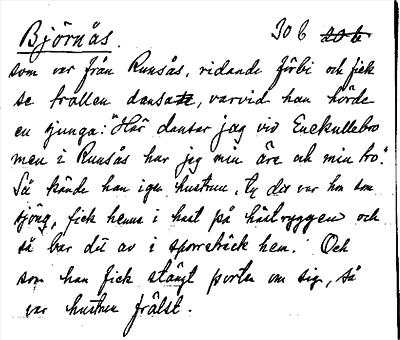 Björnås. 30 b 20 b
som var från Runsås, ridande förbi och fick
se trollen dansa, varvid han hörde
en sjunga: "Här dansar jag vid Enekullebro
men i Runsås har jag min äro och min tro."
Då kände han igen hustrun, ty det var hon som
sjöng, fick henne i hast på hästryggen och
så bar det av i sporrsträck hem. Och
som han fick stängt porten om sig, så
var hustrun frälst.